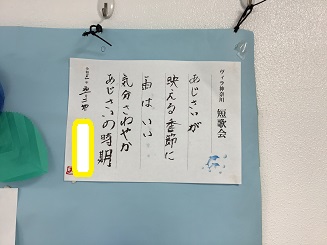 ヴィラ神奈川 短歌会
あじさいが
映える季節に
雨はいい
気分さわやか
あじさいの時期